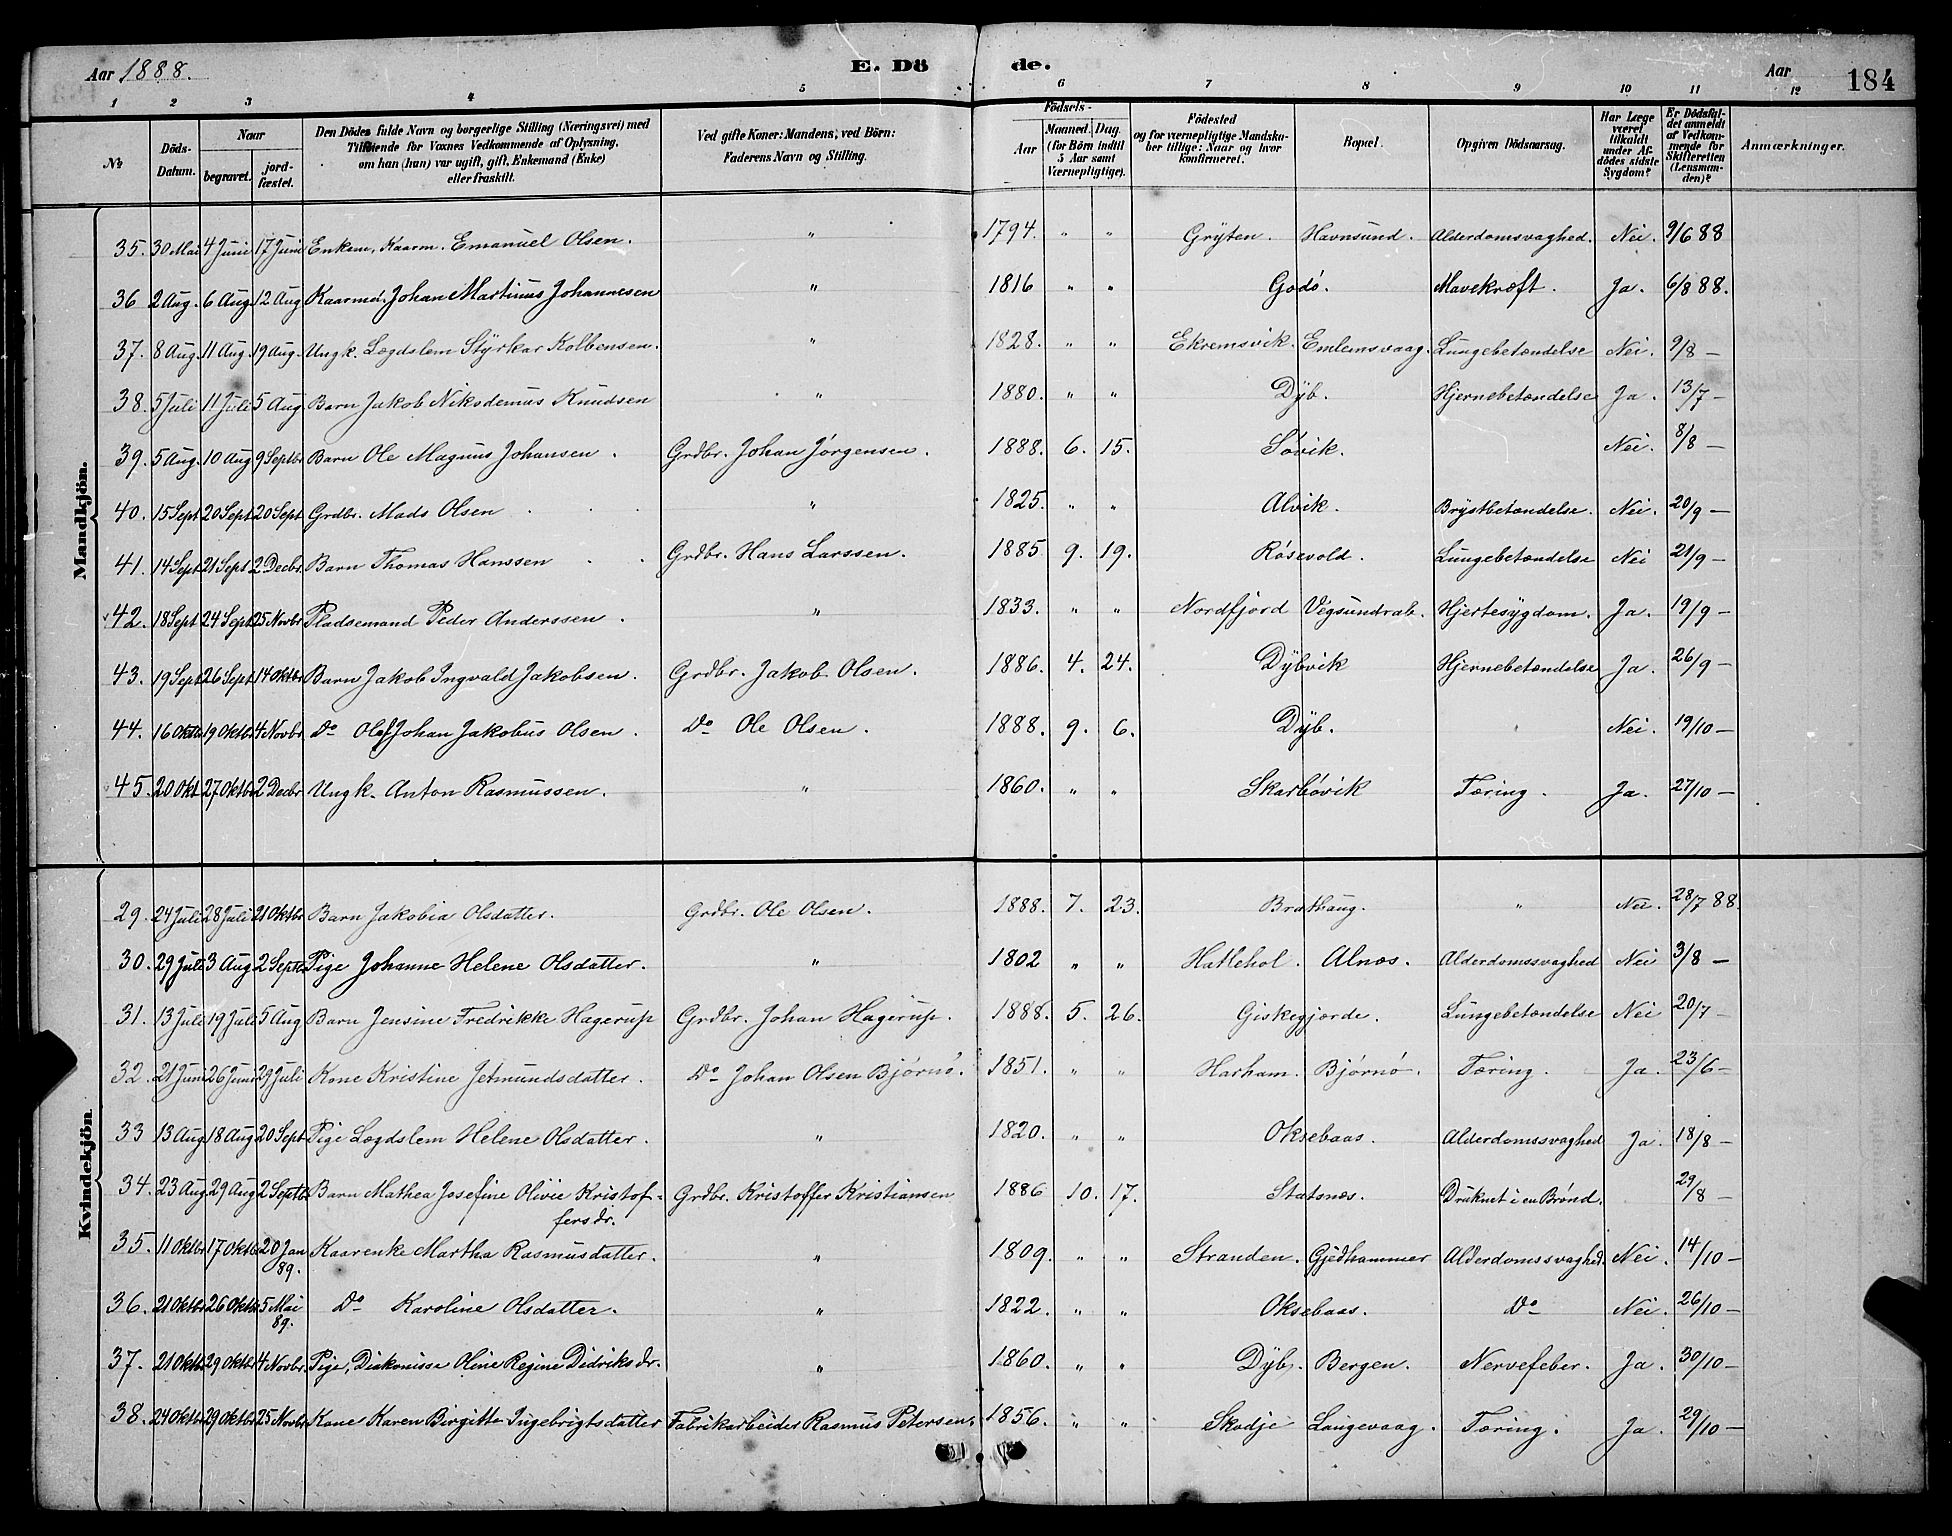 Aar 1888. E. Dö de. Aar 184
1 2 3 4 5 6 7 8 9 10 11 12
No
Döds-Datum.
Naar
begravet.
jord-fæstet.
Den Dödes fulde Navn og borgerlige Stilling (Næringsvei) med
Tilföiende for Voxnes Vedkommende af Oplysning,
om han (hun) var ugift, gift, Enkemand (Enke)
eller fraskilt.
Ved gifte Koner: Mandens, ved Börn:
Faderens Navn og Stilling.
Födsels-
Aar
Maaned. Dag.
(for Börn indtil
5 Aar samt
Værnepligtige).
Födested
og for værnepligtige Mandska-
ber tillige: Naar og hvor
konfirmeret.
Bopæl.
Opgiven Dödsaarsag.
Har Læge
været
tilkaldt
under Af-
dödes sidste
Sygdom?
Er Dödsfal-
det anmeldt
af Vedkom-
mende for
Skifteretten
(Lensman-
den)?
Anmærkninger.
Mandkjön.
35. 30 Mai 4 Juni 17 Juni Enkem. Kaarm. Emanuel Olsen. " 1794. " " Gryten. Havnsund. Alderdomsvaghed. Nei. 9/6 88
36 2 Aug. 6 Aug. 12 Aug Kaarmd. Johan Martinus Johannesen " 1816 " " Godö. Mavekræft. Ja. 6/8 88.
37. 8 Aug. 11 Aug. 19 Aug. Ungk. Lægdslem Styrkar Kolbensen. " 1828. " " Ekremsvik. Emlemsvaag. Lungebetændelse Nei. 9/8 –
38. 5 Juli 11 Juli 5 Aug. Barn Jakob Nikodemus Knudsen " 1880. " " Dyb. Hjernebetændelse Ja. 13/7 –
39. 5 Aug. 10 Aug 9 Septbr Barn Ole Magnus Johansen. Grdbr. Johan Jörgensen. 1888. 6. 15. Sövik. Nei. 8/8 –
40. 15 Sept 20 Sept 20 Sept Grdbr. Mads Olsen " 1825. " " Alvik. Brystbetændelse. Nei. 20/9 –
41. 14 Sept 21 Sept 2 Decbr. Barn Thomas Hanssen Grdbr. Hans Larssen. 1885. 9. 19. Rösevold. Lungebetændelse Nei 21/9 –
42. 18 Sept 24 Sept. 25 Novbr Pladsemand Peder Anderssen. " 1833. " " Nordfjord Vegsundrab. Hjertesygdom. Ja. 19/9 –
43. 19 Sept 26 Sept. 14 Oktbr Barn Jakob Ingvald Jakobsen. Grdbr. Jakob Olsen. 1886. 4. 24. Dybvik Hjernebetændelse Ja. 26/9 –
44. 16 Oktbr 19 Oktbr 4 Novbr. Do Olaf Johan Jakobus Olsen. Do Ole Olsen. 1888. 9. 6. Dyb. " Nei. 19/10 –
45. 20 Okt 27 Oktbr 2 Decbr. Ungk. Anton Rasmussen. " 1860. " " Skarbövik Tæring. Ja. 27/10 –
Kvindekjön
29. 24 Juli 28 Juli 21 Oktbr Barn Jakobia Olsdatter. Grdbr. Ole Olsen. 1888. 7. 23. Brathaug. " Nei. 28/7 88.
30. 29 Juli 3 Aug 2 Septbr Pige Johanne Helene Olsdatter. " 1802 " " Hatlehol. Alnæs. Alderdomssvaghed Nei 3/8 –
31. 13 Juli 19 Juli 5 Aug Barn Jensine Fredrikke Hagerup Grdbr. Johan Hagerup. 1888. 5. 26. Giskegjerde. Lungebetændelse Nei 20/7 –
32. 21 Juni 26 Juni 29 Juli Kone Kristine Jetmundsdatter. Do Johan Olsen Björnö. 1851. " " Harham. Björnö. Tæring. Ja. 23/6 –
33 13 Aug 18 Aug 20 Sept Pige Lægdslem Helene Olsdatter. " 1820. " " Oksebaas. Alderdomssvaghed Ja. 18/8 –
34. 23 Aug 29 Aug 2 Septbr Barn Mathea Josefine Olivie Kristof- Grdbr. Kristoffer Kristiansen 1886 10. 17. Statsnes. Druknet i en Brönd. 29/8 –
fersdr.
35. 11 Oktbr 17 Oktbr 20 Jan Kaarenke Martha Rasmusdatter. " 1809. " " Stranden. Gjedhammer Alderdomssvaghed. Nei. 14/10 –
89.
36. 21 Oktbr 26 Oktbr 5 Mai Do Karoline Olsdatter. " 1822. " " Oksebaas. Do Nei. 26/10 –
89.
37. 21 Oktbr 29 Oktbr 4 Novbr. Pige, Diakonisse Oline Regine Didriksdr. " 1860. " " Dyb. Bergen. Nervefeber. Ja. 30/10 –
38. 24 Oktbr 29 Oktbr 25 Novbr Kone Karen Birgitte Ingebrigtsdatter Fabrikarbeider Rasmus Petersen. 1856. " " Skodje Langevaag. Tæring. Ja. 29/10 –